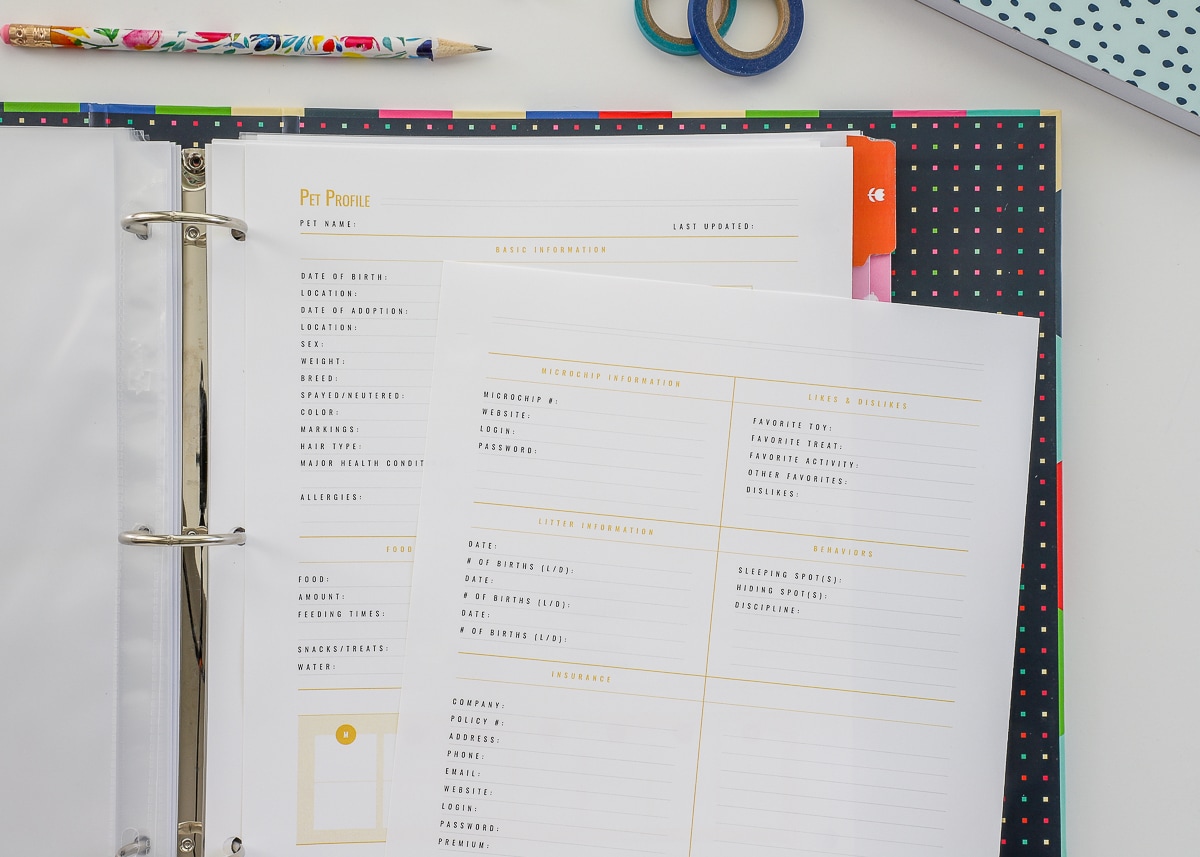 PET PROFILE
PET NAME:
LAST UPDATED:
BASIC INFORMATION
DATE OF BIRTH:
LOCATION:
DATE OF ADOPTION:
LOCATION:
SEX:
WEIGHT:
BREED:
SPAYED/NEUTERED:
COLOR:
MARKINGS:
HAIR TYPE:
MAJOR HEALTH CONDIT
ALLERGIES:
FOOD
FOOD:
AMOUNT:
FEEDING TIMES:
SNACKS/TREATS:
WATER:
M
MICROCHIP INFORMATION
MICROCHIP #:
WEBSITE:
LOGIN:
PASSWORD:
LIKES & DISLIKES
FAVORITE TOY:
FAVORITE TREAT:
FAVORITE ACTIVITY:
OTHER FAVORITES:
DISLIKES:
LITTER INFORMATION
DATE:
# OF BIRTHS (L/D):
DATE:
# OF BIRTHS (L/D):
DATE:
# OF BIRTHS (L/D):
BEHAVIORS
SLEEPING SPOT(S):
HIDING SPOT(S):
DISCIPLINE:
INSURANCE
COMPANY:
POLICY #:
ADDRESS:
PHONE:
EMAIL:
WEBSITE:
LOGIN:
PASSWORD:
PREMIUM: